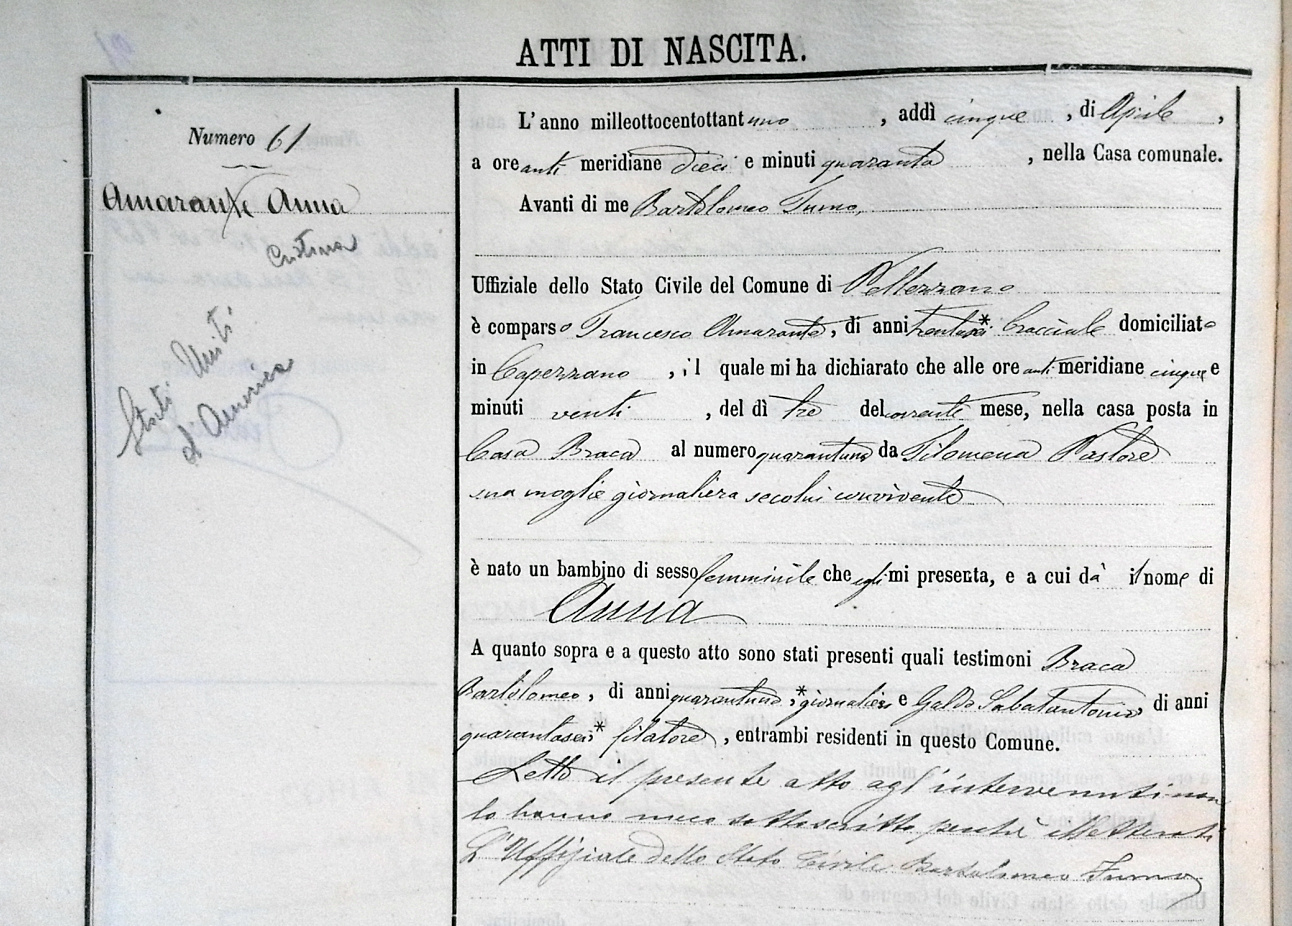 ATTI DI NASCITA.
Numero 61
Amarante Anna
Cristina
Stati Uniti
d'America
L'anno milleottocentottantuno, addì cinque, di Aprile,
a ore anti meridiane dieci e minuti quaranta, nella Casa comunale.
Avanti di me Bartolomeo Fumo,
Uffiziale dello Stato Civile del Comune di Pellezzano
è comparso Francesco Amarante, di anni trentasei * bracciale domiciliato
in Capezzano, il quale mi ha dichiarato che alle ore anti meridiane cinque e
minuti venti, del dì tre del corrente mese, nella casa posta in
Casa Braca al numero quarantuno da Filomena Pastore
sua moglie giornaliera secolui convivente
è nato un bambino di sesso femminile che egli mi presenta, e a cui dà il nome di
Anna
A quanto sopra e a questo atto sono stati presenti quali testimoni Braca
Bartolomeo, di anni quarantuno, * giornaliere e Galdo Sabatantonio, di anni
quarantasei, * filatore, entrambi residenti in questo Comune.
Letto il presente atto agl'intervenuti non
lo hanno meco sottoscritto perchè illetterati
L'Uffiziale dello Stato Civile Bartolomeo Fumo